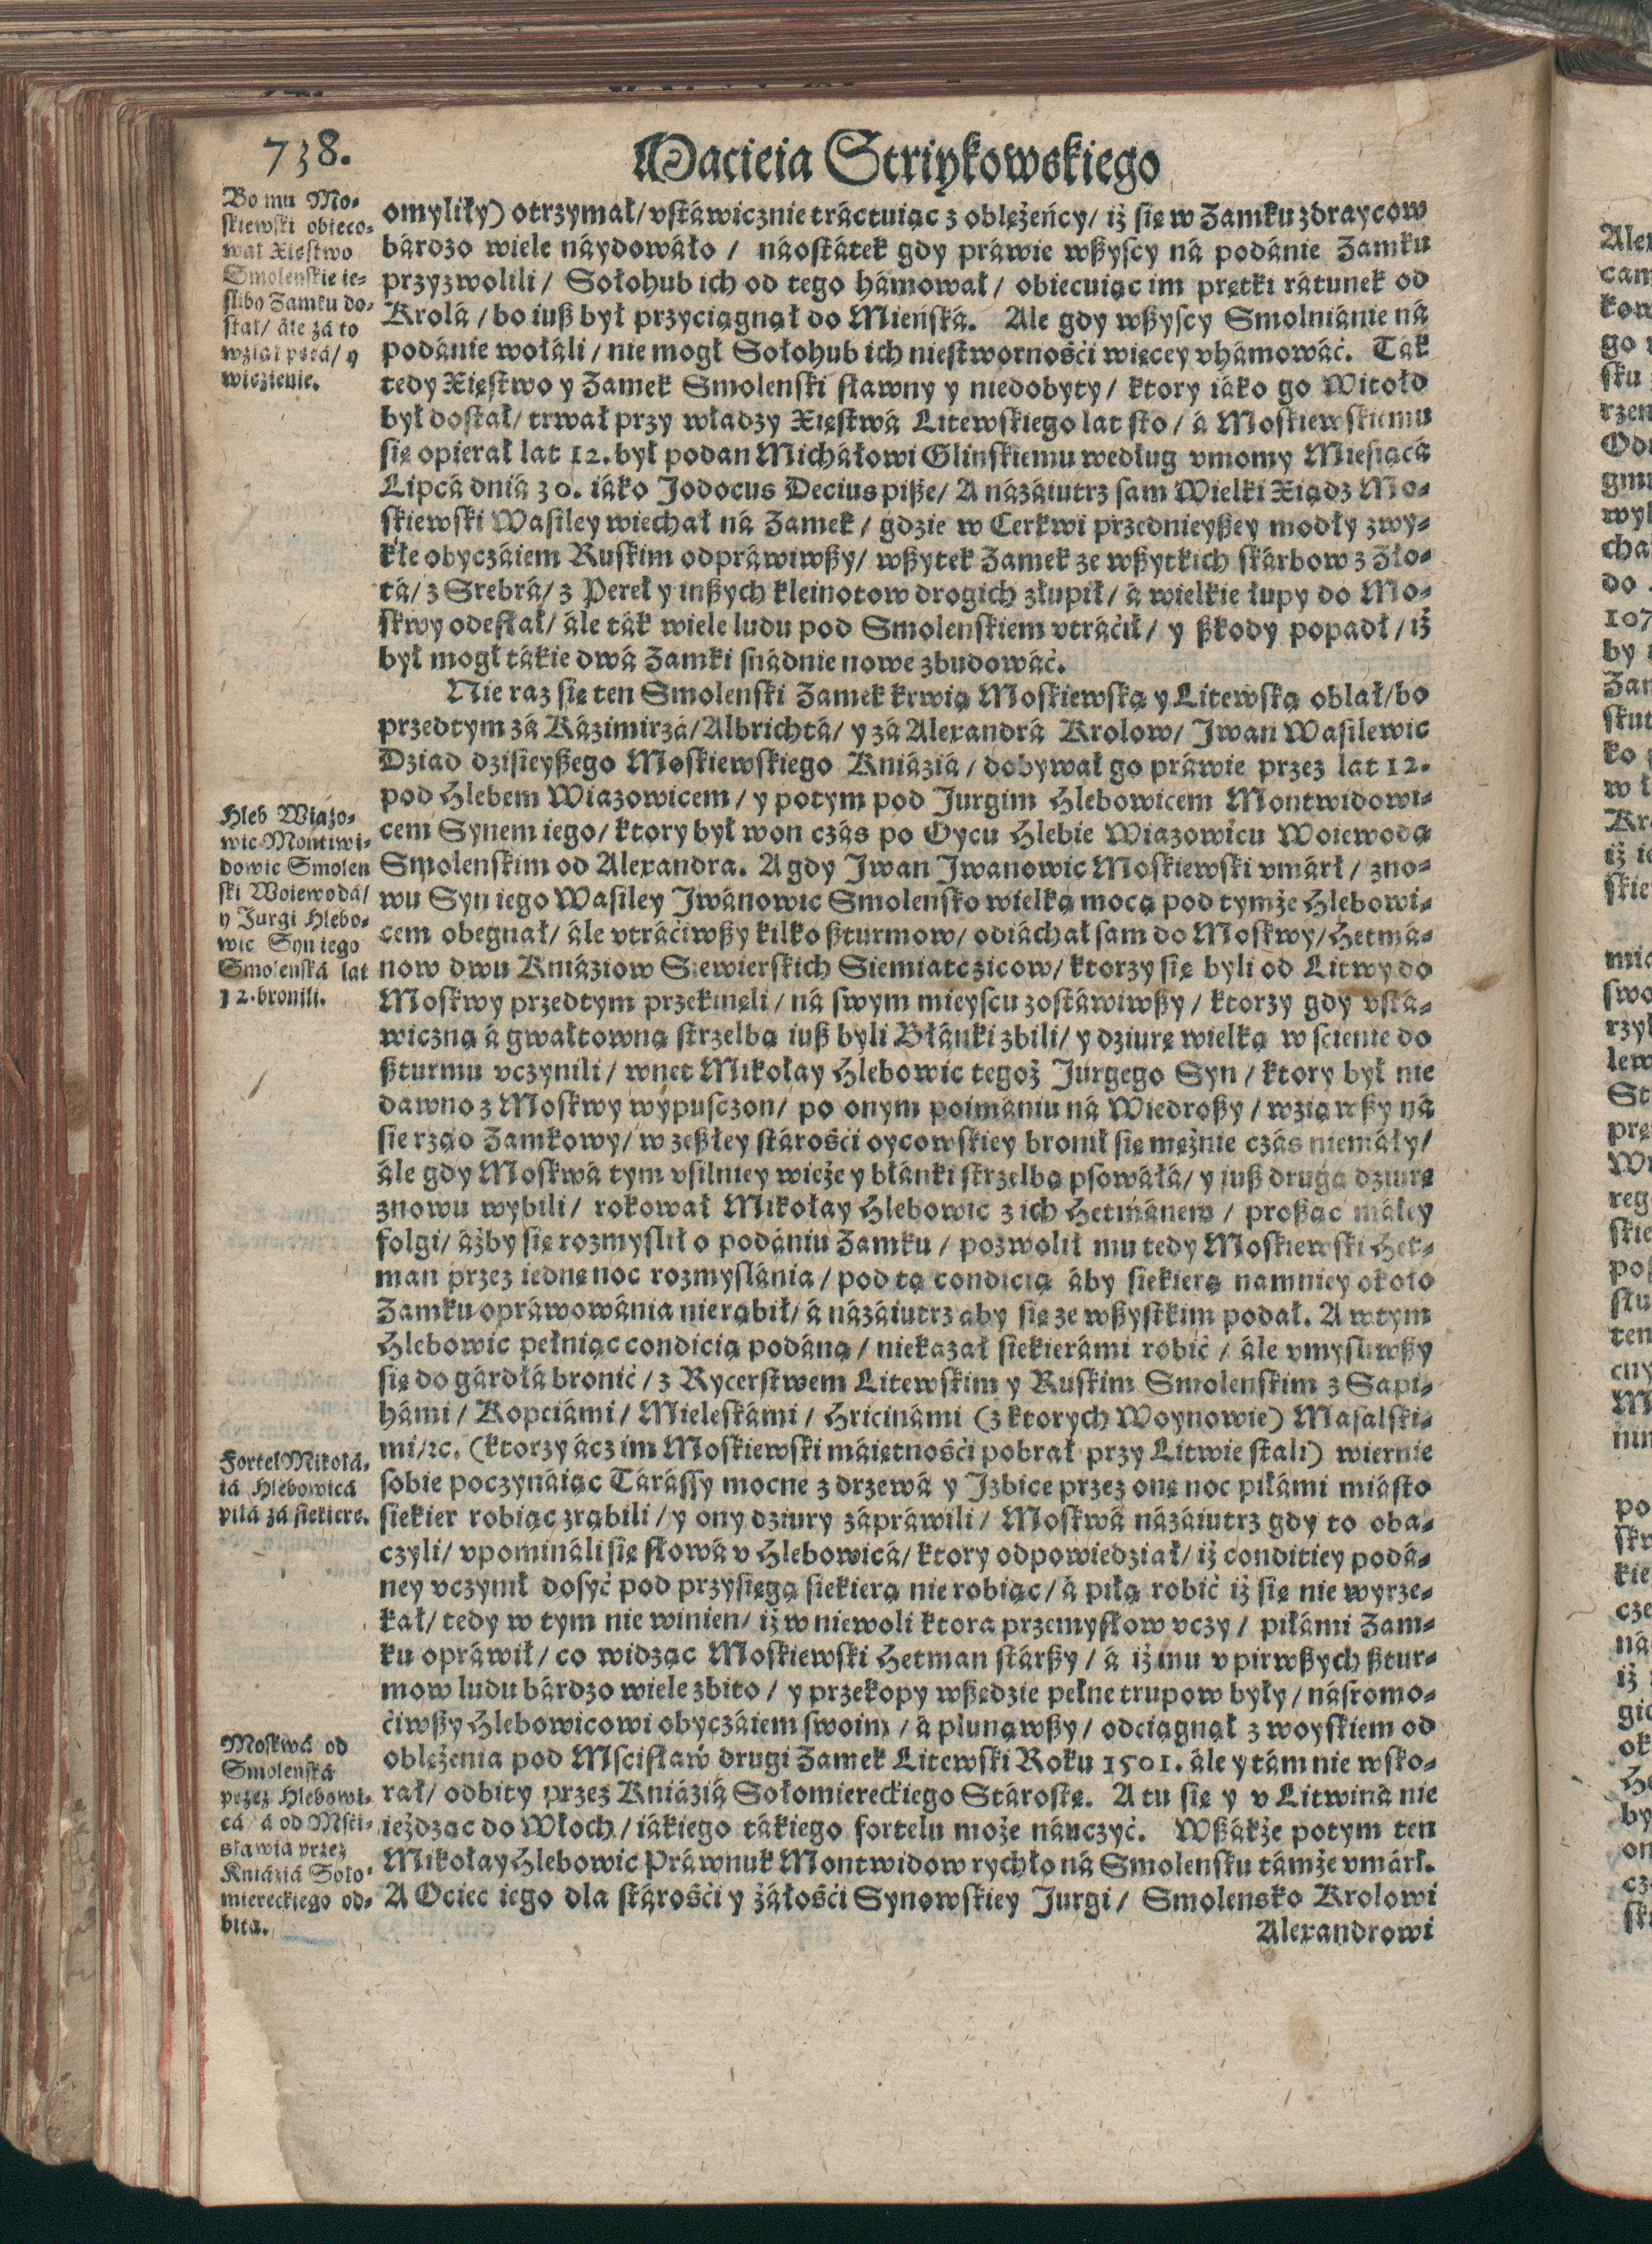 738.
Macieia Striykowskiego
Bo mu Mo⸗
skiewski obieco⸗
wał Xięstwo
Smolenskie ie⸗
slibo Zamku do⸗
stał/ ále zá to
wziął pętá/ y
więzienie.
omyliły) otrzymał/ vstáwicznie tráctuiąc z oblężeńcy/ iż się w Zamku zdraycow
bárdzo wiele náydowáło / náostátek gdy práwie wßyscy ná podánie Zamku
przyzwolili / Sołohub ich od tego hámował / obiecuiąc im prętki rátunek od
Krolá / bo iuß był przyciągnął do Mieńská. Ale gdy wßyscy Smolniánie ná
podánie wołáli / nie mogł Sołohub ich niestwornośći więcey vhámowáć. Ták
tedy Xięstwo y Zamek Smolenski sławny y niedobyty / ktory iáko go Witołd
był dostał/ trwał przy władzy Xięstwá Litewskiego lat sto / á Moskiewskiemu
się opierał lat 12. był podan Micháłowi Glinskiemu według vmomy Miesiącá
Lipcá dniá 30. iáko Jodocus Decius piße/ A názáiutrz sam Wielki Xiądz Mo⸗
skiewski Wasiley wiechał ná Zamek / gdzie w Cerkwi przednieyßey modły zwy⸗
kłe obyczáiem Ruskim odpráwiwßy/ wßytek Zamek ze wßytkich skárbow z Zło⸗
tá/ z Srebrá/ z Pereł y inßych kleinotow drogich złupił/ á wielkie łupy do Mo⸗
skwy odesłał/ ále ták wiele ludu pod Smolenskiem vtráćił/ y ßkody popadł / iż
był mogł tákie dwá Zamki snádnie nowe zbudowáć.
Nie raz się ten Smolenski Zamek krwią Moskiewską y Litewską oblał/ bo
przedtym zá Kázimirzá/ Albrichtá/ y zá Alexandrá Krolow/ Jwan Wasilewic
Dziad dzisieyßego Moskiewskiego Kniáziá / dobywał go práwie przez lat 12.
pod Hlebem Wiazowicem / y potym pod Jurgim Hlebowicem Montwidowi⸗
cem Synem iego/ ktory był won czás po Oycu Hlebie Wiazowicu Woiewodą
Smolenskim od Alexandra. A gdy Jwan Jwanowic Moskiewski vmárł / zno⸗
wu Syn iego Wasiley Jwánowic Smolensko wielką mocą pod tymże Hlebowi⸗
cem obegnał/ ále vtráćiwßy kilko ßturmow/ odiáchał sam do Moskwy/ Hetmá⸗
now dwu Kniáziow Siewierskich Siemiatczicow/ ktorzy się byli od Litwy do
Moskwy przedtym przekinęli / ná swym mieyscu zostáwiwßy / ktorzy gdy vstá⸗
wiczną á gwałtowną strzelbą iuß byli Błánki zbili/ y dziurę wielką w scienie do
ßturmu vczynili / wnet Mikołay Hlebowic tegoż Jurgego Syn / ktory był nie
dawno z Moskwy wypusczon/ po onym poimániu ná Wiedroßy / wziąwßy ná
się rząd Zamkowy/ w zeßłey stárośći oycowskiey bronił się mężnie czás niemáły/
ále gdy Moskwá tym vsilniey wieże y błánki strzelbą psowáłá/ y iuß drugą dziurę
znowu wybili / rokował Mikołay Hlebowic z ich Hetmánem / proßąc máłey
folgi/ áżby się rozmyslił o podániu Zamku / pozwolił mu tedy Moskiewski Het⸗
man przez iednę noc rozmyslánia / pod tą condicią áby siekierą namniey około
Zamku opráwowánia nierąbił/ á názáiutrz aby się ze wßystkim podał. A wtym
Hlebowic pełniąc condicią podáną / niekazał siekierámi robić / ále vmysliwßy
się do gárdłá bronić / z Rycerstwem Litewskim y Ruskim Smolenskim z Sapi⸗
hámi / Kopciámi / Mieleskámi / Hricinámi (z ktorych Woynowie) Masalski⸗
mi/ ꝛc. (ktorzy ácz im Moskiewski máiętnośći pobrał przy Litwie stali) wiernie
sobie poczynáiąc Tárássy mocne z drzewá y Jzbice przez onę noc piłámi miásto
siekier robiąc zrąbili / y ony dziury zápráwili / Moskwá názáiutrz gdy to oba⸗
czyli/ vpomináli się słowá v Hlebowicá/ ktory odpowiedział/ iż conditiey podá⸗
ney vczynił dosyć pod przysięgą siekierą nie robiąc/ á piłą robić iż się nie wyrze⸗
kał/ tedy w tym nie winien/ iż w niewoli ktora przemysłow vczy / piłámi Zam⸗
ku opráwił / co widząc Moskiewski Hetman stárßy / á iż mu v pirwßych ßtur⸗
mow ludu bárdzo wiele zbito / y przekopy wßędzie pełne trupow były / násromo⸗
ćiwßy Hlebowicowi obyczáiem swoim / á plunąwßy / odciągnął z woyskiem od
oblężenia pod Mscisław drugi Zamek Litewski Roku 1501. ále y tám nie wsko⸗
rał/ odbity przez Kniáziá Sołomiereckiego Stárostę. A tu się y v Litwiná nie
ieżdząc do Włoch / iákiego tákiego fortelu może náuczyć. Wßákże potym ten
Mikołay Hlebowic Práwnuk Montwidow rychło ná Smolensku támże vmárł.
A Ociec iego dla stárośći y żáłośći Synowskiey Jurgi / Smolensko Krolowi
Alexandrowi
Hleb Wiázo⸗
wic Montiwi⸗
dowic Smolen
ski Woiewodá/
y Jurgi Hlebo⸗
wic Syn iego
Smolenská lat
12. bronili.
Fortel Mikołá⸗
iá Hlebowicá
piłá zá siekierę.
Moskwá od
Smolenská
przez Hlebowi⸗
cá/ á od Msci⸗
sławiá przez
Kniáziá Soło⸗
miereckiego od⸗
bita.